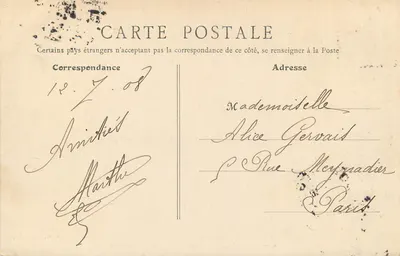 CARTE POSTALE
Certains pays étrangers n'acceptant pas la correspondance de ce côté, se renseigner à la Poste
Correspondance
12.7.08
Amitiés
Marthe
Adresse
Mademoiselle
Alice Gervais
5 Rue Meynadier
Paris